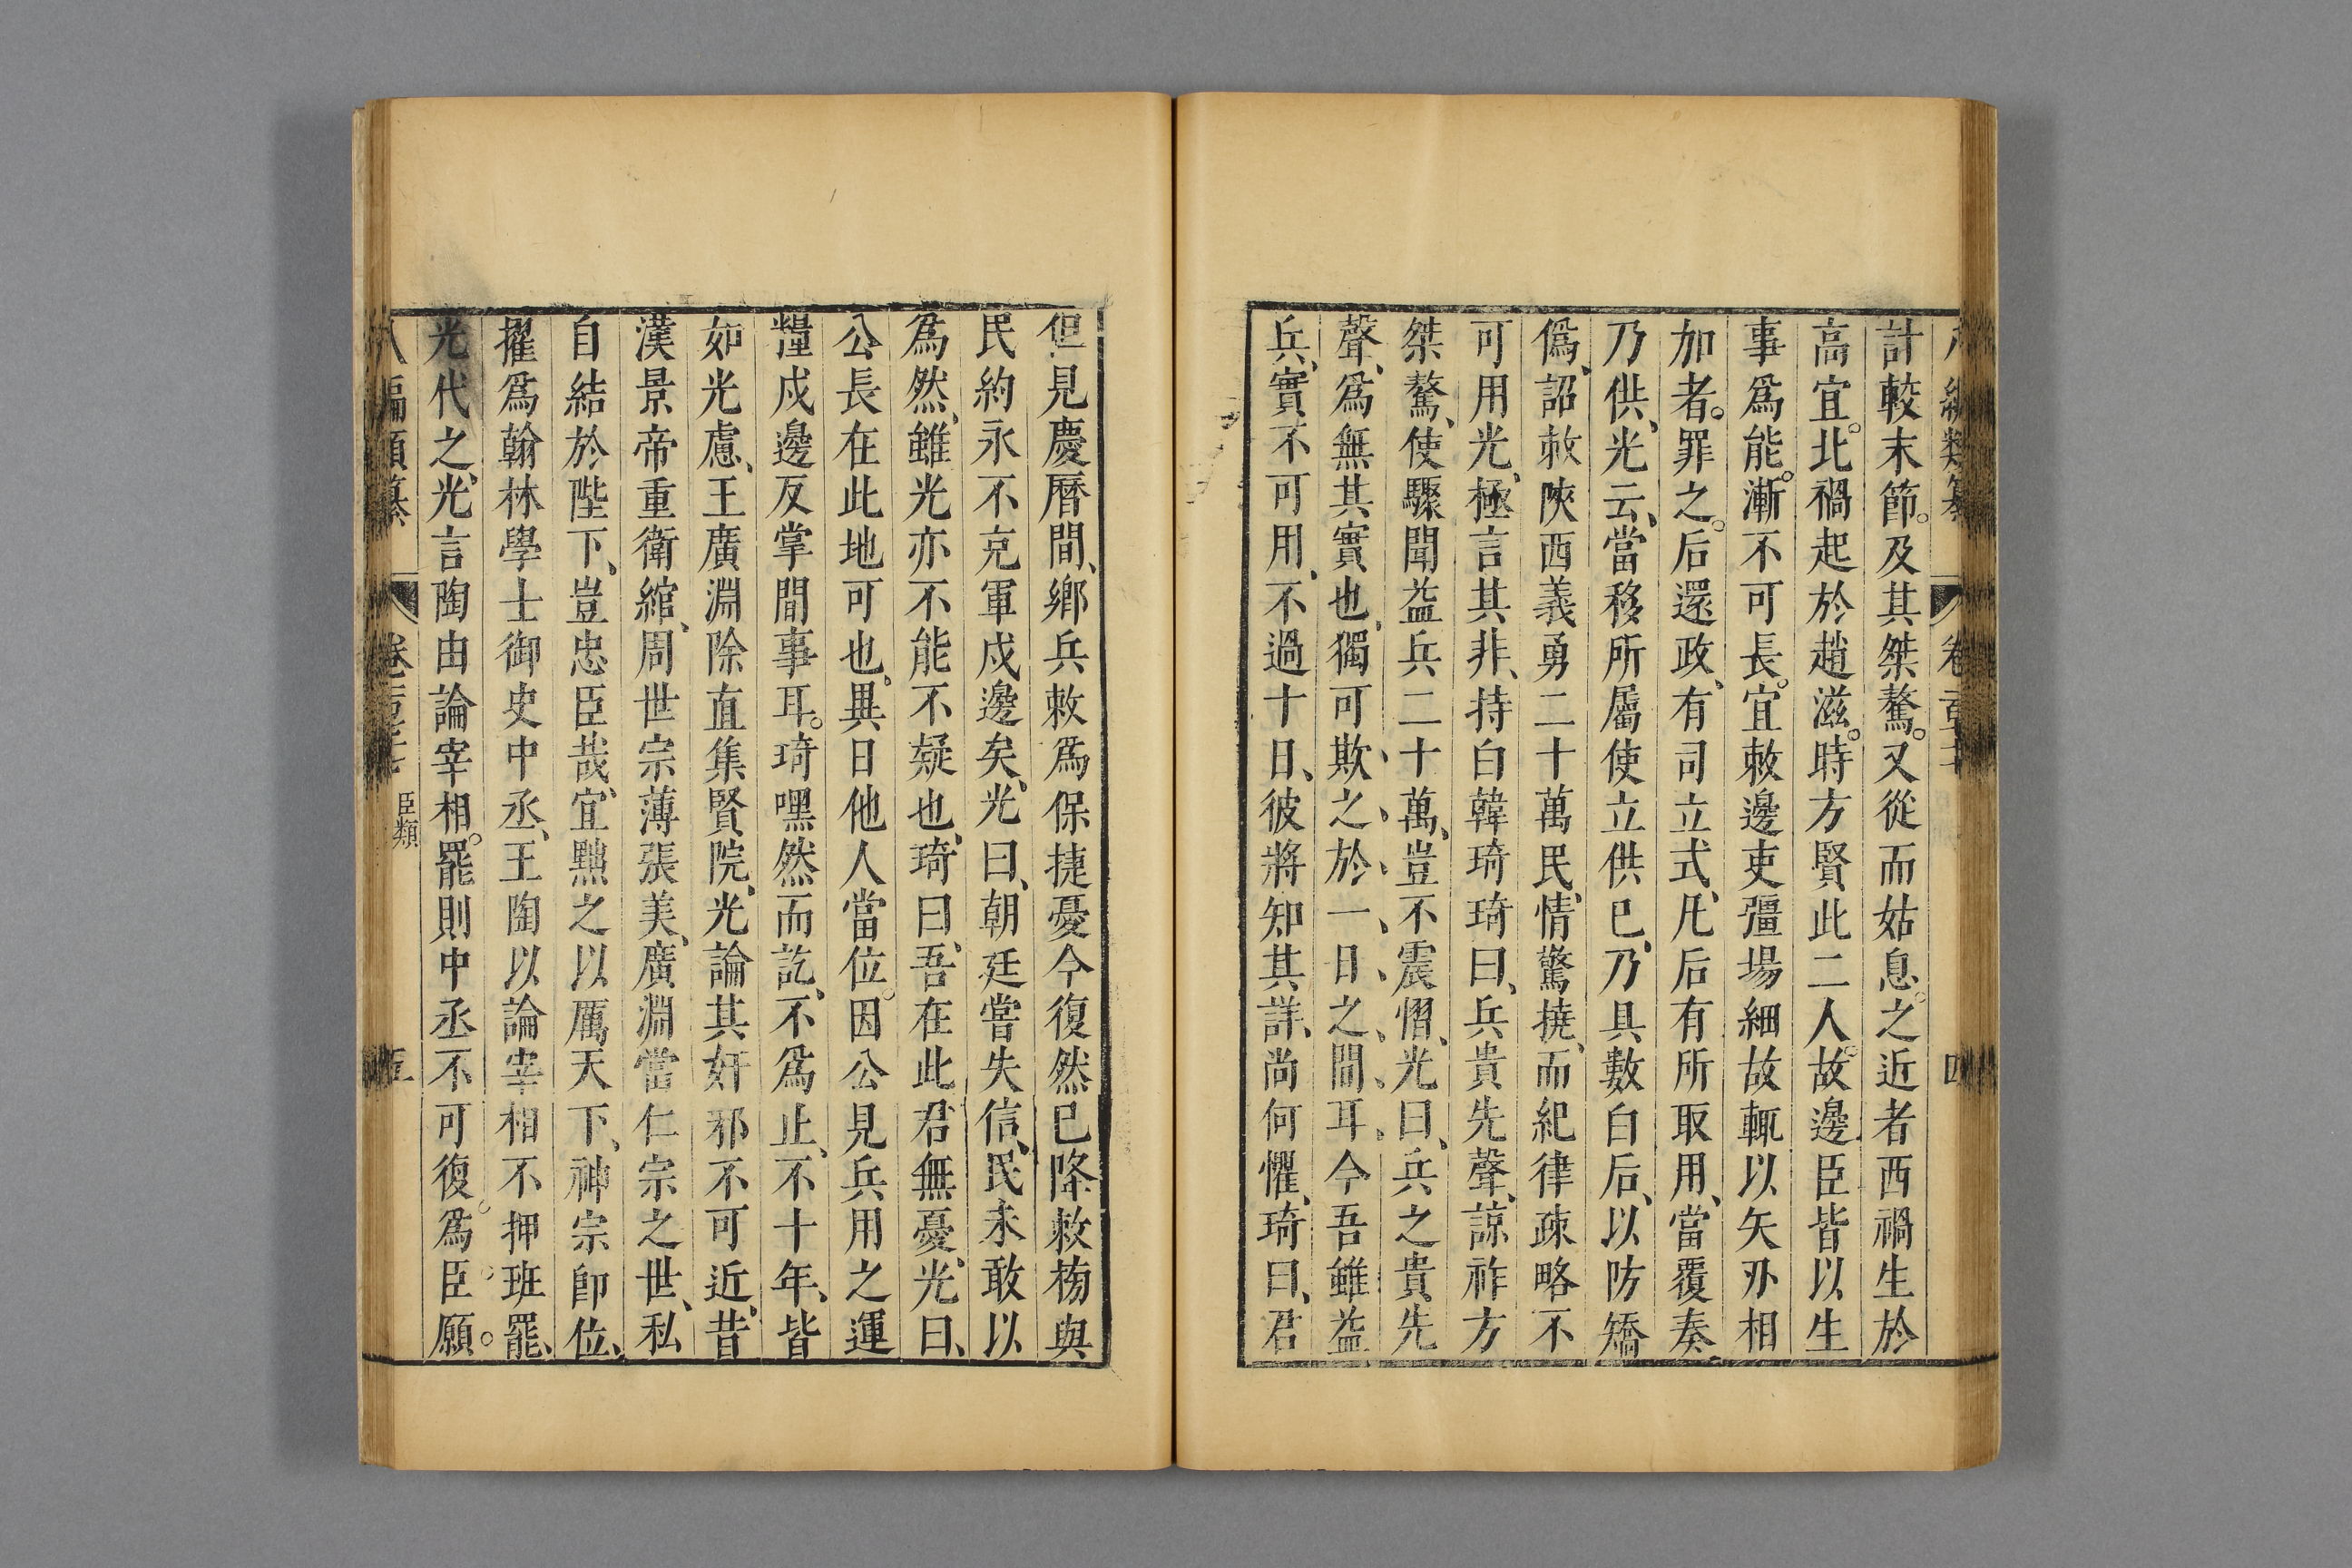 計較末節。及其桀驁。又從而姑息。之近者西禍生於
高宜。北禍起於趙滋。時方賢此二人。故邊臣皆以生
事爲能。漸不可長。宜敕邊吏彊場細故輒以矢刃相
加者。罪之。后還政、有司立式、凡后有所取用、當覆奏、
乃供、光云、當移所屬使立供已、乃具數白后、以防矯
僞、詔敕陝西義勇二十萬民、情驚撓、而紀律疎略不
可用光、極言其非、持白韓琦琦曰、兵貴先聲、諒祚方
桀驁、使驟聞益兵二十萬、豈不震慴、光曰、兵之貴先
聲、爲無其實也、獨可欺、之、於、一、日、之、間、耳、今吾雖益
兵、實不可用、不過十日、彼將知其詳、尚何懼、琦曰、君
但見慶曆間、鄉兵敕爲保捷憂今復然已降敕榜與
民約永不充軍戍邊矣、光曰、朝廷嘗失信、民未敢以
爲然、雖光亦不能不疑也、琦曰、吾在此君無憂、光曰、
公長在此地可也、異日他人當位。因公見兵用之運
糧戍邊反掌間事耳。琦嘿然而訖、不爲止、不十年、皆
如光慮、王廣淵除直集賢院、光論其奸邪不可近、昔
漢景帝重衛綰、周世宗薄張美、廣淵當仁宗之世、私
自結於陛下、豈忠臣哉、宜黜之以厲天下、神宗卽位、
擢爲翰林學士御史中丞、王陶以論宰相不押班罷、
光代之、光言陶由論宰相。罷則中丞不可復。爲臣。願。
編類纂 卷 臣類 五